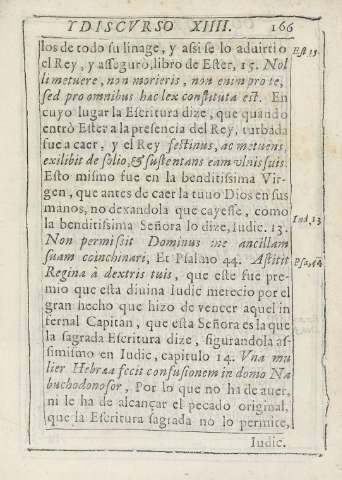 Y DISCVRSO XIIII. 166
los de todo su linage, y assi se lo aduirtio
el Rey, y asseguro, libro de Ester, 15. Nol
li metuere, non morieris, non enim pro te,
sed pro omnibus hac lex constituta est. En
cuyo lugar la Escritura dize, que quando
entrò Ester a la presencia del Rey, turbada
fue a caer, y el Rey festinus, ac metuens
exilibit de solio, & sustentans eam vlnis suis
Esto mismo fue en la benditissima Vir-
gen, que antes de caer la tuuo Dios en sus
manos, no dexandola que cayesse, como
la benditissima Señora lo dize, Iudic. 13.
Non permissit Dominus me ancillam
suam coinchinari, Et Psalmo 44. Astitit
Regina à dextris tuis, que este fue pre-
mio que esta diuina Iudic merecio por el
gran hecho que hizo de vencer aquel in
fernal Capitan, que esta Señora es la que
la sagrada Escritura dize, figurandola as-
simismo en Iudic, capitulo 14. Vna mu
lier Hebræa fecit confusionem in domo Na
buchodonosor, Por lo que no ha de auer,
ni le ha de alcançar el pecado original,
que la Escritura sagrada no lo permite,
Iudic.
Est. 15
Iud, 13
Psa, 44